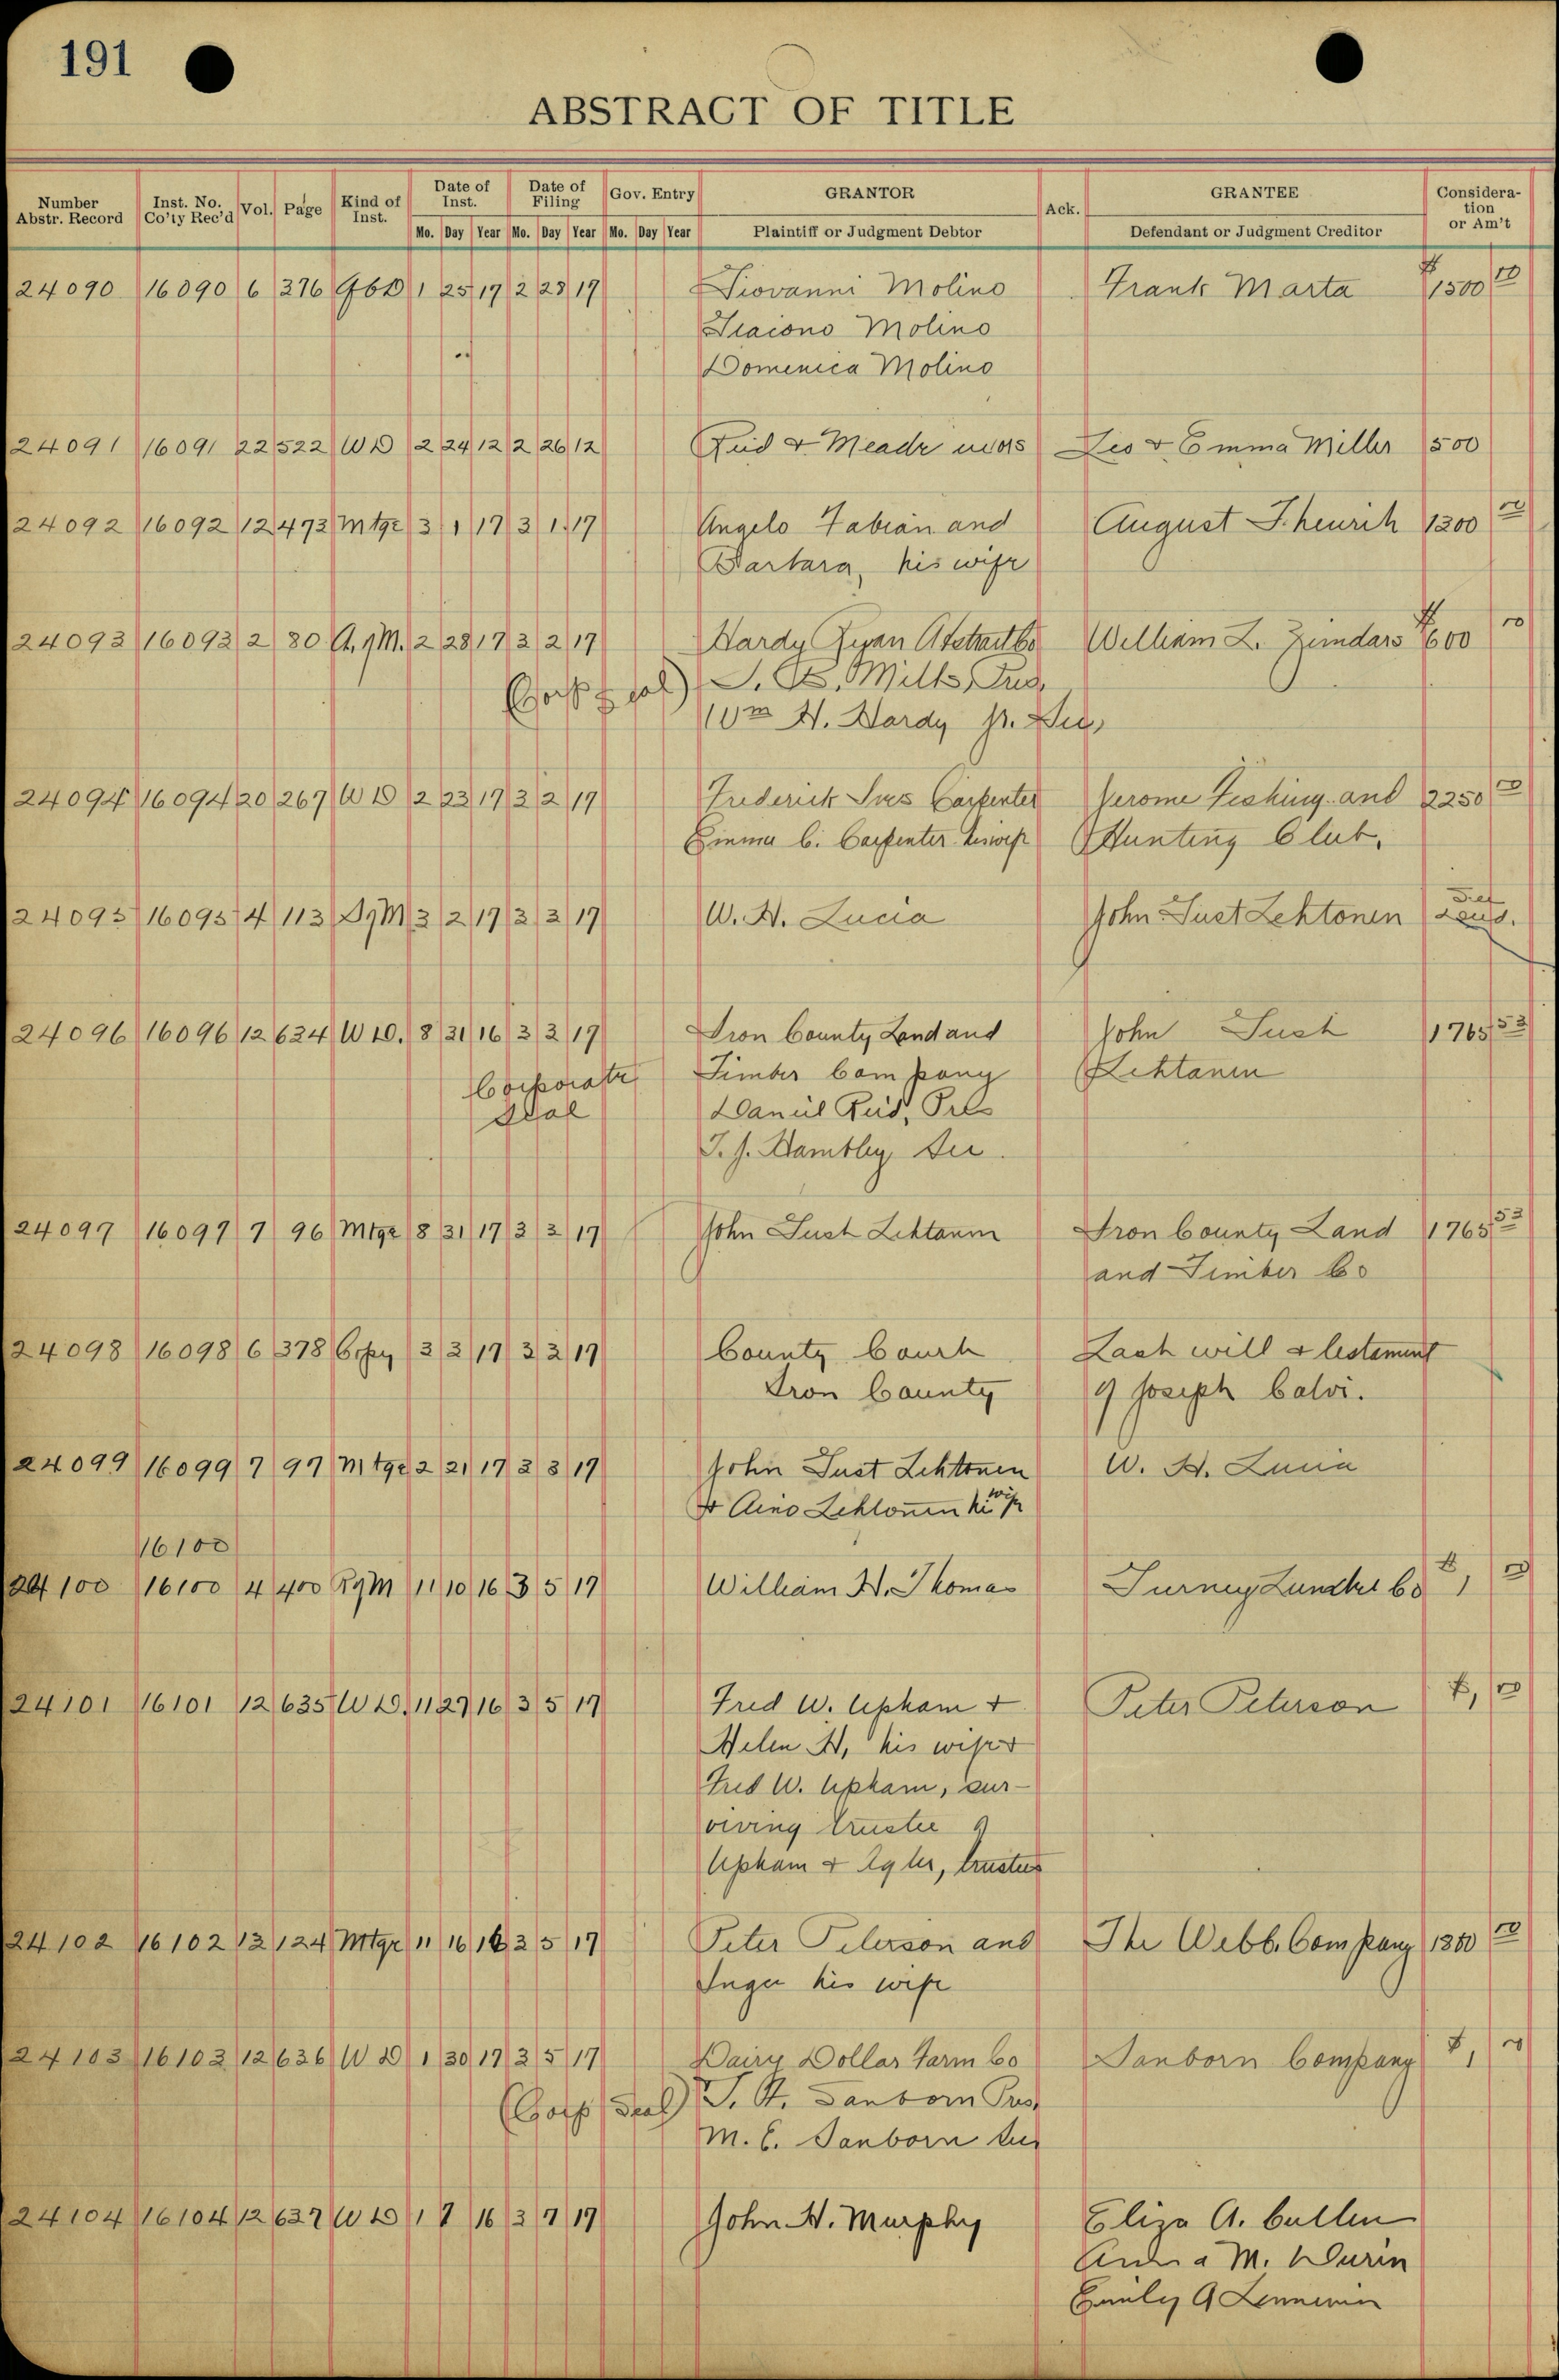 191
ABSTRACT OF TITLE
Number Abstr. Record Inst. No. Co'ty Rec'd Vol. Page Kind of Inst. Date of Inst. Date of Filing Gov. Entry GRANTOR Ack. GRANTEE Consideration or Am't
Mo. Day Year Mo. Day Year Mo. Day Year Plaintiff or Judgment Debtor Defendant or Judgment Creditor
24090 16090 6 376 1 25 17 2 28 17 Giovanni Molino Frank Marta $1500 00
Molino
Domenica Molino
24091 16091 22 522 WD 2 24 12 2 26 12 Reid & Meade Leo & Emma Miller 500
24092 16092 12 473 Mtge 3 1 17 3 1 17 Angelo Fabian and August J. 1300 00
Barbara, his wife
24093 16093 2 80 A. of M. 2 28 17 3 2 17 Hardy Ryan Abstract Co William L. Zundars $600 00
(Corp seal) S. B. Mills, Pres.
Wm H. Hardy Jr. Sec.
24094 16094 20 267 WD 2 23 17 3 2 17 Frederick Ives Carpenter Jerome Fishing and 2250 00
Emma C. Carpenter his wife Hunting Club.
24095 16095 4 113 D of M 3 2 17 3 3 17 W. H. Lucia John Just Lehtonen
24096 16096 12 634 WD. 8 31 16 3 3 17 Iron County Land and John Just 1765 53
Corporate Timber Company Lehtanen
Seal Daniel Reid, Pres
T. J. Hambley, Sec.
24097 16097 7 96 Mtge 8 31 17 3 3 17 John Just Lehtanen Iron County Land 1765 53
and Timber Co
24098 16098 6 378 Copy 3 3 17 3 3 17 County Court Last will & testament
Iron County of Joseph Calvi.
24099 16099 7 97 Mtge 2 21 17 3 3 17 John Just Lehtonen W. H. Lucia
& Aino Lehtonen his wife
16100
24100 16100 4 400 R of M 11 10 16 3 5 17 William H. Thomas Turney Lumber Co $1 00
24101 16101 12 635 WD. 11 27 16 3 5 17 Fred W. Upham & Peter Peterson $1 00
Helen H, his wife &
Fred W. Upham, sur-
viving trustee of
Upham & Agler, trustees
24102 16102 13 124 Mtge 11 16 16 3 5 17 Peter Peterson and The Webb Company 1300 00
Inger his wife
24103 16103 12 636 WD 1 30 17 3 5 17 Dairy Dollar Farm Co Sanborn Company $1 00
(Corp Seal) S. A. Sanborn Pres
M. C. Sanborn Sec
24104 16104 12 637 WD 1 7 16 3 7 17 John H. Murphy Eliza A. Cullen
Anna M. Durin
Emily A